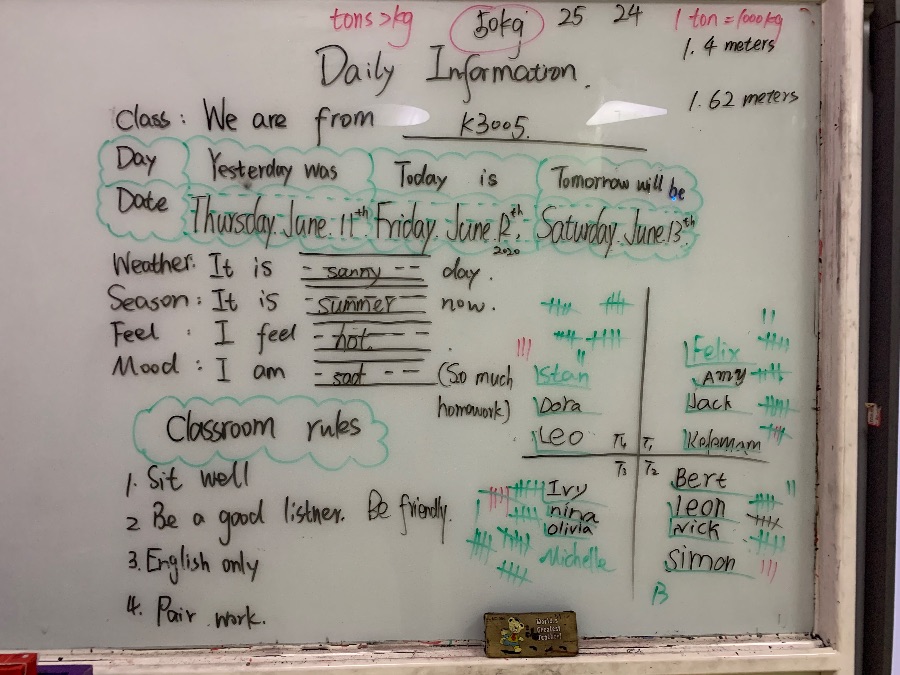 tons > kg 50kg 25 24 1 ton = 1000kg
1.4 meters
Daily Information.
1.62 meters
Class: We are from K3005.
Day Yesterday was Today is Tomorrow will be
Date Thursday. June. 11th Friday. June. 12th, Saturday. June. 13th
2020
Weather: It is sunny day.
Season: It is summer now.
Feel: I feel hot.
Mood: I am sad (So much
homework)
Felix
Stan Amy
Dora Jack
Leo T4 T1
T3 T2
Classroom rules
1. Sit well
2 Be a good listner. Be friendly.
3. English only
4. Pair work.
Ivy Bert
nina Leon
olivia Nick
Michelle Simon
B
World's
Greatest
Teacher!